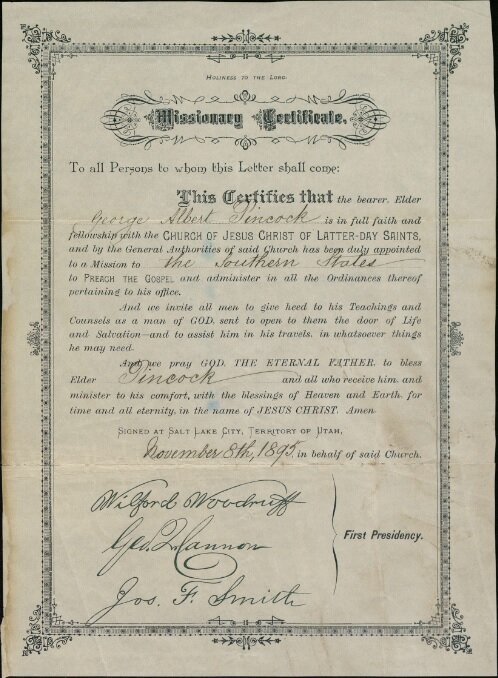 HOLINESS TO THE LORD.
Missionary Certificate.
To all Persons to whom this Letter shall come:
This Certifies that the bearer, Elder
George Albert Pincock is in full faith and
fellowship with the CHURCH OF JESUS CHRIST OF LATTER-DAY SAINTS,
and by the General Authorities of said Church has been duly appointed
to a Mission to the Southern States
to PREACH THE GOSPEL and administer in all the Ordinances thereof
pertaining to his office.
And we invite all men to give heed to his Teachings and
Counsels as a man of GOD, sent to open to them the door of Life
and Salvation—and to assist him in his travels, in whatsoever things
he may need.
And we pray GOD, THE ETERNAL FATHER, to bless
Elder Pincock and all who receive him, and
minister to his comfort, with the blessings of Heaven and Earth, for
time and all eternity, in the name of JESUS CHRIST. Amen.
SIGNED AT SALT LAKE CITY, TERRITORY OF UTAH,
November 8th, 1895, in behalf of said Church.
Wilford Woodruff
Geo. Q. Cannon
First Presidency.
Jos. F. Smith